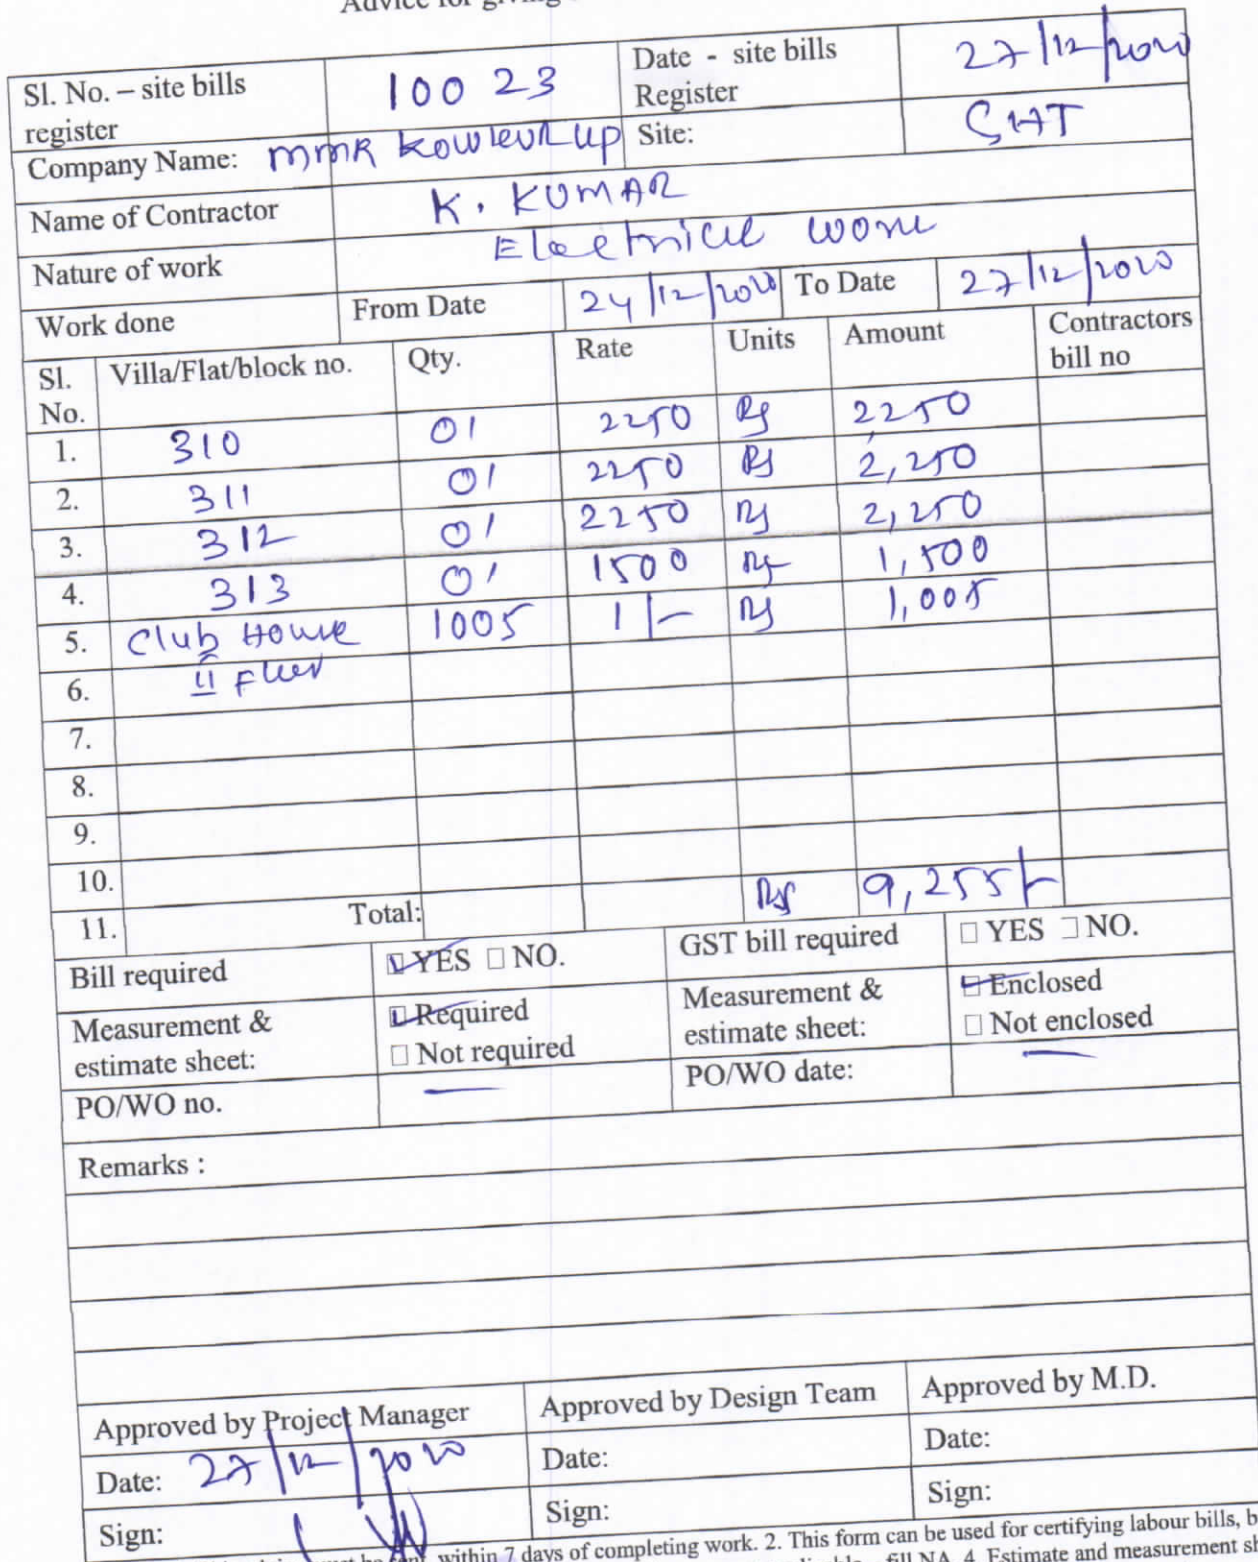 Advice for giving
Sl. No. – site bills register 10023 Date - site bills Register 27/12/2020
Company Name: MMR KOWKUR LLP Site: GHT
Name of Contractor K. KUMAR
Nature of work Electrical work
Work done From Date 24/12/2020 To Date 27/12/2020
Sl. No. Villa/Flat/block no. Qty. Rate Units Amount Contractors bill no
1. 310 01 2250 Rs 2250
2. 311 01 2250 Rs 2,250
3. 312 01 2250 Rs 2,250
4. 313 01 1500 Rs 1,500
5. Club House 1005 1/- Rs 1,005
6. II Floor
7.
8.
9.
10.
11. Total: Rs 9,255/-
Bill required ☑ YES □ NO. GST bill required □ YES □ NO.
Measurement & estimate sheet: ☑ Required □ Not required Measurement & estimate sheet: ☑ Enclosed □ Not enclosed
PO/WO no. — PO/WO date: —
Remarks :
Approved by Project Manager Approved by Design Team Approved by M.D.
Date: 27/12/2020 Date: Date:
Sign: Sign: Sign:
within 7 days of completing work. 2. This form can be used for certifying labour bills,
fill NA. 4. Estimate and measurement